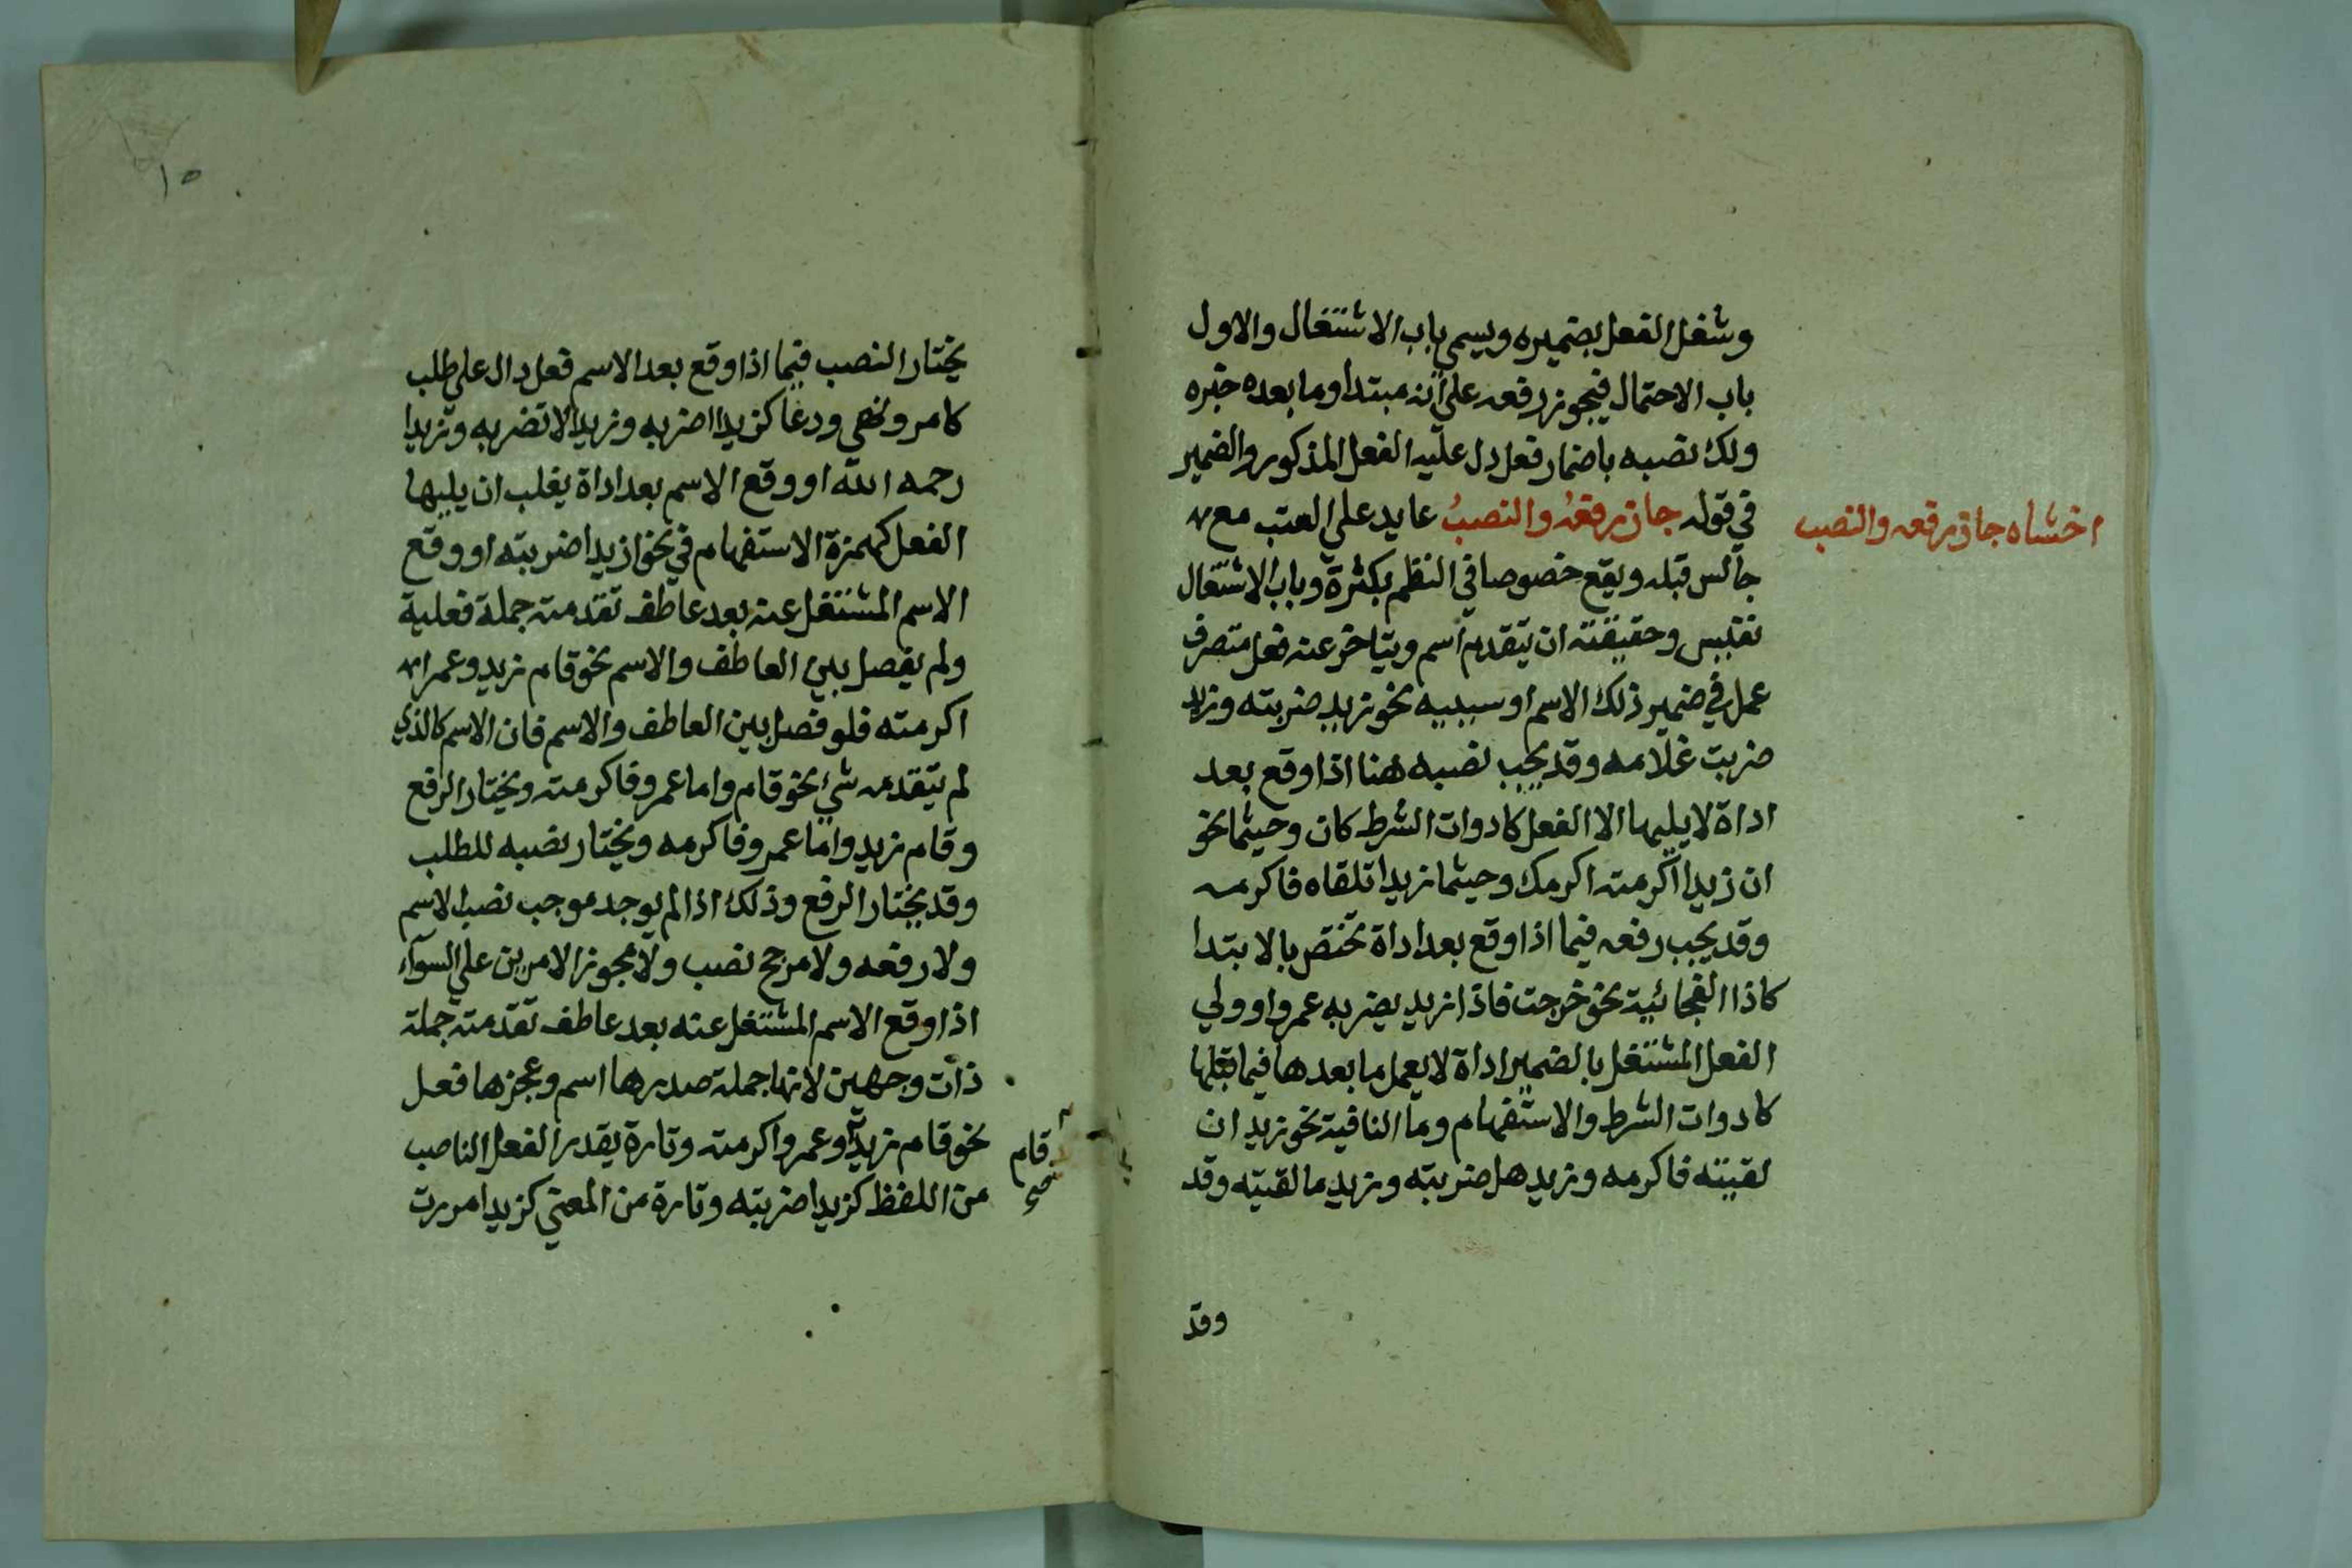 وشغل الفعل بضميره ويسمى باب الاشتغال والاول
باب الاحتمال فيجوز رفعه على انه مبتدا وما بعده خبره
ولك نصبه باضمار فعل دل عليه الفعل المذكور والضمير
في قوله جاز رفعهُ والنصبُ عايد على العتب مع
اخشاه جاز رفعه والنصب
جالس قبله ويقع خصوصا في النظم بكثرة وباب الاشتغال
نفيس وحقيقته ان يتقدم اسم ويتاخر عنه فعل متصرف
عمل في ضمير ذلك الاسم او سببيه نحو زيد ضربته وزيد
ضربت غلامه وقد يجب نصبه هنا اذا وقع بعد
اداة لا يليها الا الفعل كادوات الشرط كان وحيثما نحو
ان زيدا اكرمته اكرمك وحيثما زيدا تلقاه فاكرمه
وقد يجب رفعه فيما اذا وقع بعد اداة تختص بالابتدا
كاذا الفجائية نحو خرجت فاذا زيد يضربه عمرو او ولي
الفعل المشتغل بالضمير اداة لا يعمل ما بعدها فيما قبلها
كادوات الشرط والاستفهام وما النافية نحو زيد ان
لقيته فاكرمه وزيد هل ضربته وزيد ما لقيته وقد
وقد
١٥
يختار النصب فيما اذا وقع بعد الاسم فعل دال على طلب
كامر ونهي ودعا كزيدا اضربه وزيدا لا تضربه وزيدا
رحمه الله او وقع الاسم بعد اداة يغلب ان يليها
الفعل كهمزة الاستفهام في نحو ازيدا ضربته او وقع
الاسم المشتغل عنه بعد عاطف تقدمته جملة فعلية
ولم يفصل بين العاطف والاسم نحو قام زيد وعمرا
اكرمته فلو فصل بين العاطف والاسم فان الاسم كالذي
لم يتقدمه شي نحو قام واما عمرو فاكرمته ويختار الرفع
وقام زيد واما عمرو فاكرمه ويختار نصبه للطلب
وقد يختار الرفع وذلك اذا لم يوجد موجب نصب الاسم
ولا رفعه ولا مرجح نصب ولا مجوز الامرين على السوآء
اذا وقع الاسم المشتغل عنه بعد عاطف تقدمته جملة
ذات وجهين لانها جملة صدرها اسم وعجزها فعل
نحو قام زيد وعمرو اكرمته وتارة يقدر الفعل الناصب
قام
صح
من اللفظ كزيدا ضربته وتارة من المعنى كزيدا مررت